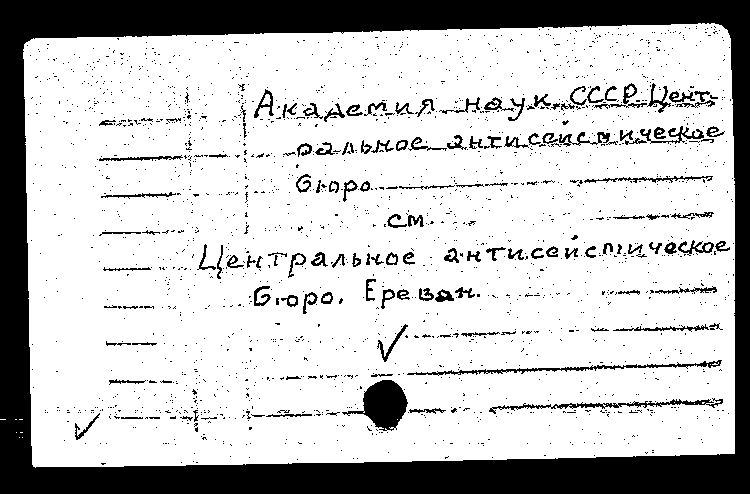 Академия наук СССР. Цент-
ральное антисейсмическое
бюро
см
Центральное антисейсмическое
бюро. Ереван.